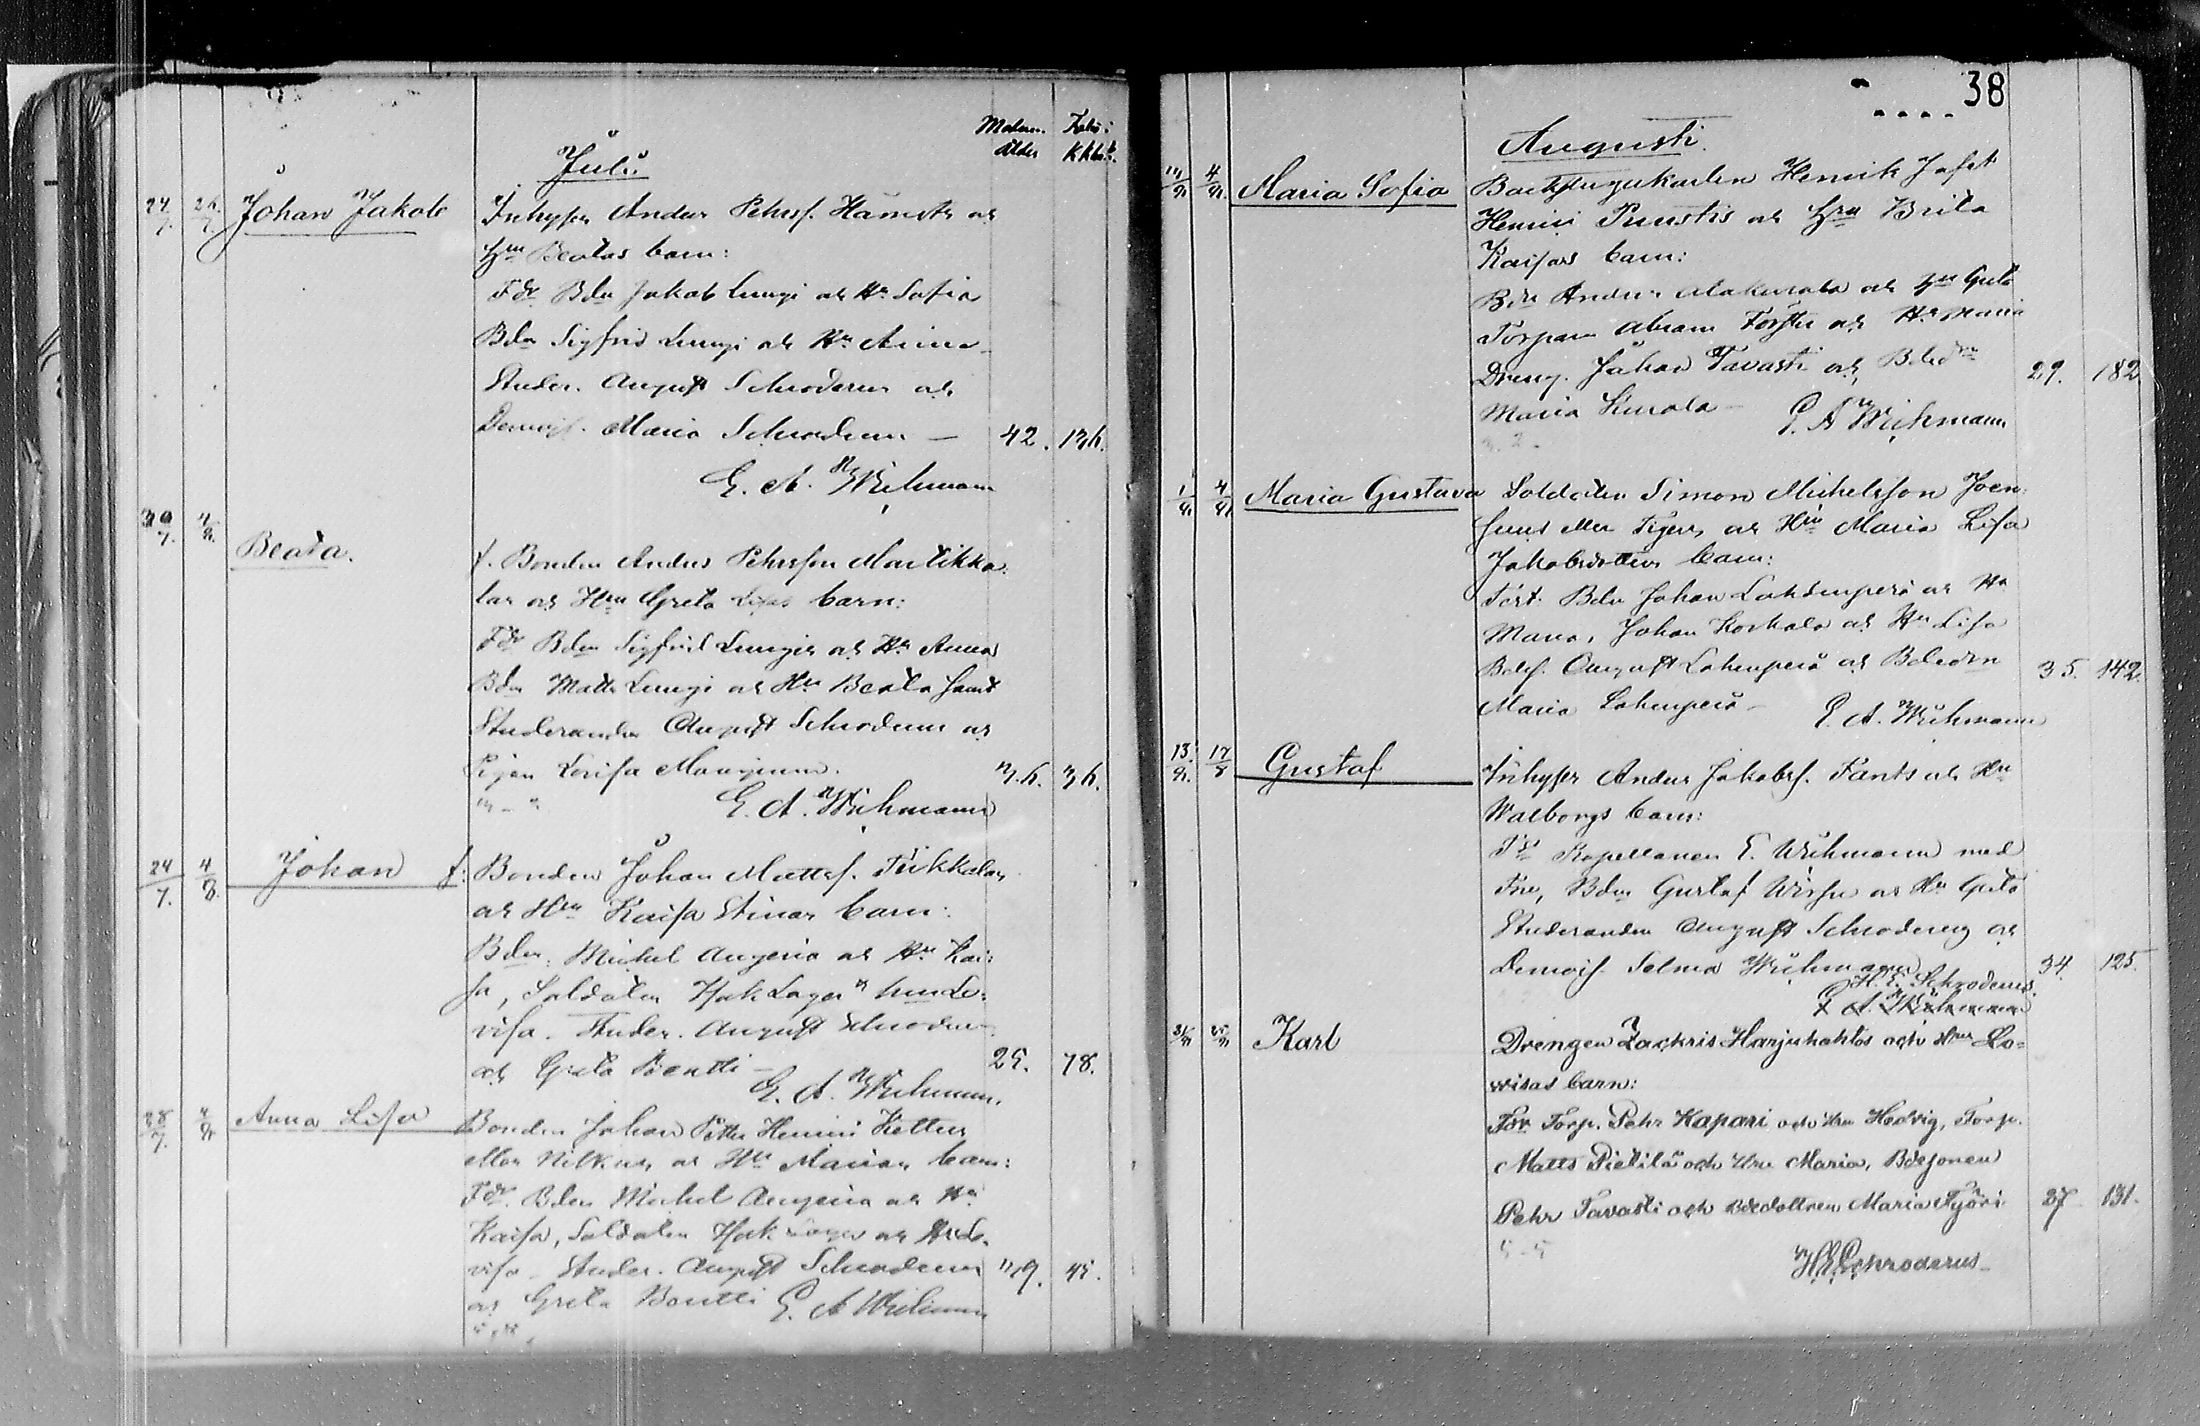 Moderns Folio i
ålder Kkbok.
Juli
24/7. 26/7. Johan Jakob Inhyses Anders Pehrss. Hämets och
Hu Beatas barn:
Fdr Bdn Jakob Lungi och Hu Sofia
Bdn Sigfrid Lungi och Hu Anna
Studer. August Schroderus och
Demois. Maria Schroderus — 42. 136.
E. A. Wichmann
30/7. 4/8. Beata. f. Bonden Anders Pehrsson Martikka-
las och Hu Greta Lisas barn:
Fdr Bdn Sigfrid Lungis och Hu Annas
Bdn Matts Lungi och Hu Beata samt
Studeranden August Schroderus och
Pigan Lovisa 36.
E. A. Wichmann
24/7. 4/8. Johan f: Bonden Johan Mattss. Tikkalas
och Hu Kaisa Stinas barn:
Bdn. Michel Angeria och Hu Kai-
sa, Soldaten Isak Lager och hu Lo-
visa. Studer. August Schroderus
och Greta Pöntti — 25. 78.
E. A. Wichmann.
28/7. 4/8. Anna Lisa Bonden Johan Petter Henrici Kettus
eller och Hu Marias barn:
Fdr. Bdn Michel Angeria och Hu
Kaisa, Soldaten Isak Lager och Hu Lo-
visa. Studer. August Schroderus 45.
och Greta E. A. Wichmann
38
Augusti.
4/8. Maria Sofia Backstugukarlen Henrik Josef
Henrici Puustis och Hu Brita
Kaisas barn:
Bdn Anders Alakurala och Hu Greta
Torpare Abram Forsti och Hu Maria
Dreng. Johan Tavasti och Bded
Maria Kurala — 29. 182
E. A. Wichmann
1/8. 4/8. Maria Gustava Soldaten Simon Michelsson Joen-
suus eller Tigers och Hu Maria Lisa
Jakobsdotters barn:
Bdn Johan Lohenperä och Hu
Maria, Johan Korkala och Hu Lisa
Bdes. August Lohenperä och Bdedtrn
Maria Lohenperä — 35. 142.
E. A. Wichmann
13/8. 17/8 Gustaf Inhyses Anders Jakobss. Fants och Hu
Walborgs barn:
Fdr Kapellanen E. Wichmann med
Fru, Bdn Gustaf och Hu Greta
Studeranden August Schroderus och
Demois. Selma Wichmann 34. 125.
H. E. Schroderus.
E A. Wichmann
Karl Drengen Zackris Harjukahtos och Hus Lo-
visas barn:
Fdr Torp. Pehr Kapari och Hu Hedvig, Torp.
Matts Pietilä och Hu Maria, Bdesonen
Pehr Tavasti och Bdedottren Maria Työri 37 131.
5-5
H. E. Schroderus